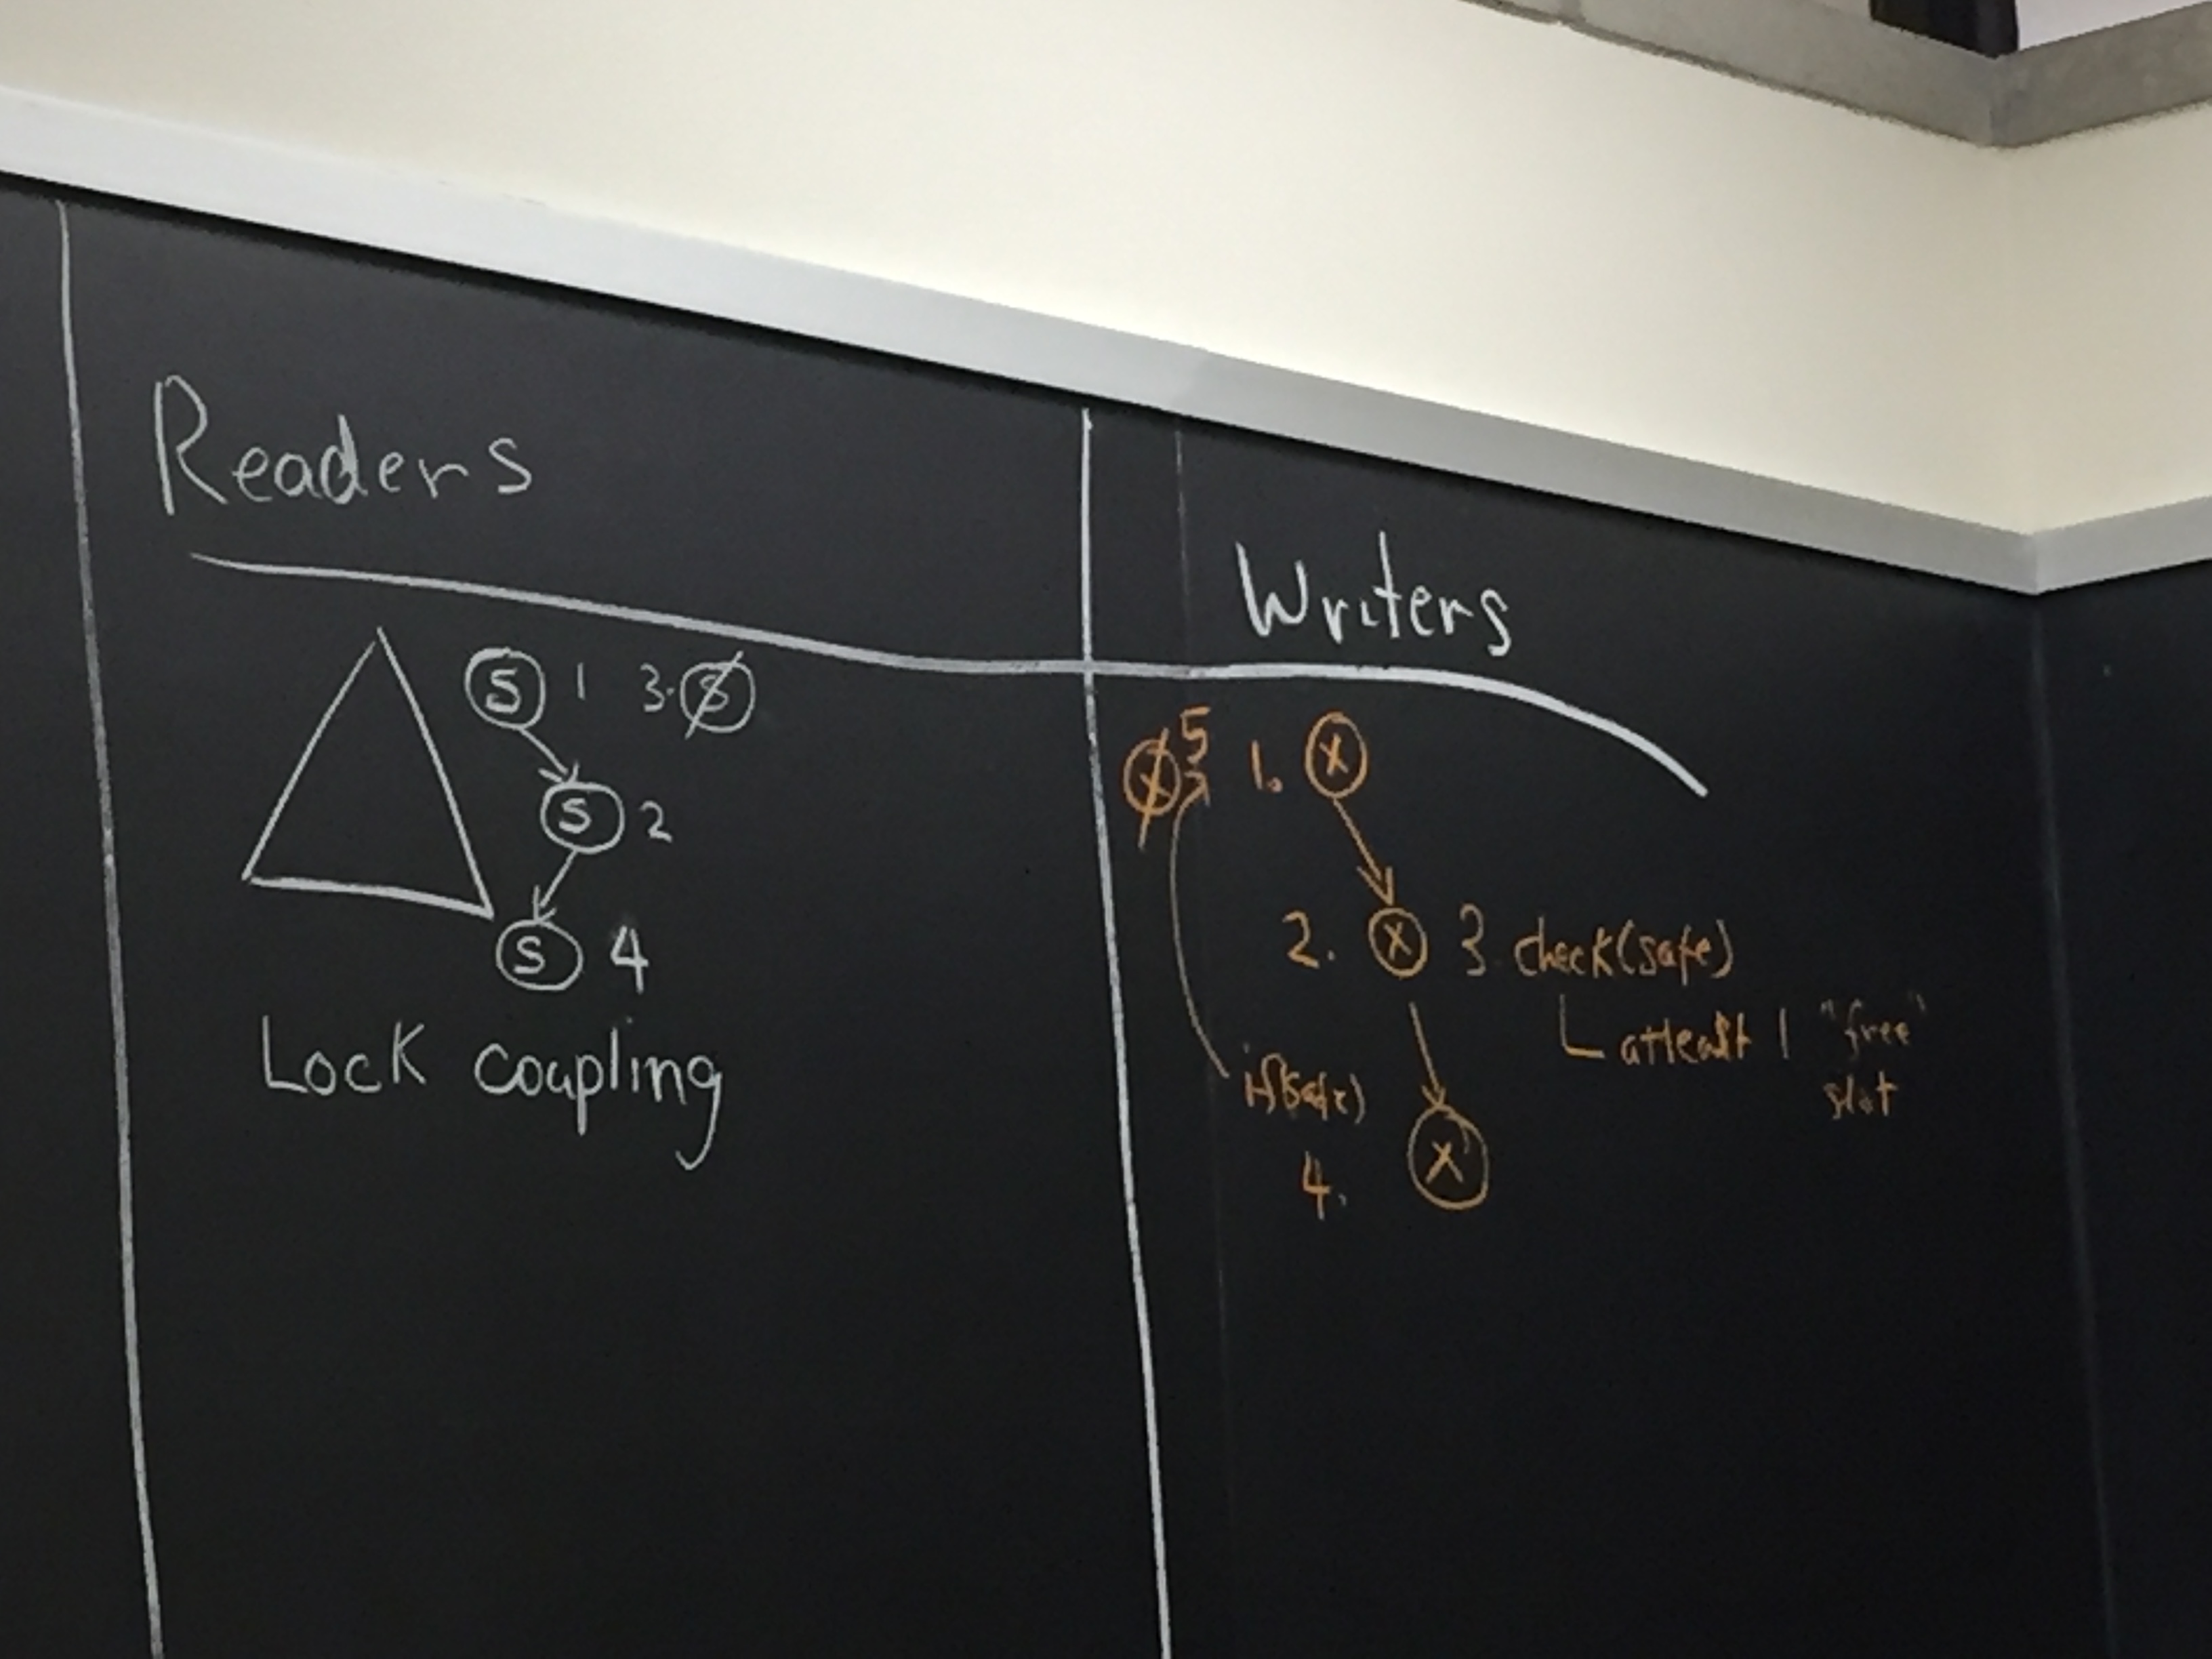 Readers
S 1 3. S
S 2
S 4
Lock coupling
Writers
X 5 1. X
2. X 3 check(safe)
atleast 1 "free"
slot
if(safe)
4. X